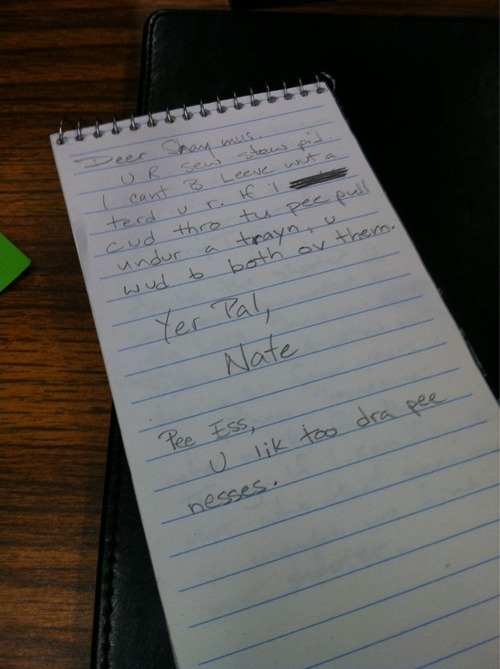 Deer Shay mus,
U R sew stow pid.
I cant B Leeve wut a
terd u r. If i
cud thro tu pee pull
undur a trayn, u
wud b both ov them.
Yer Pal,
Nate
Pee Ess,
U lik too dra pee
nesses.